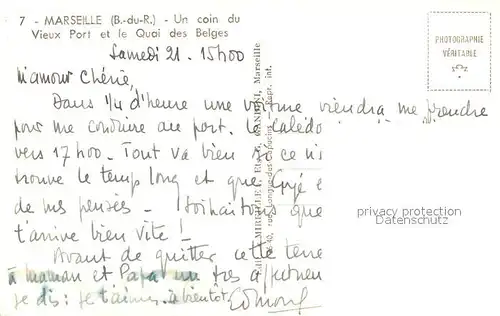 7 - MARSEILLE (B.-du-R.) - Un coin du
Vieux Port et le Quai des Belges
PHOTOGRAPHIE
VÉRITABLE
Samedi 21. 15h00
M'amour Chérie,
Dans 1/4 d'heure une voiture viendra me prendre
pour me conduire au port. le Calédo
vers 17h00. Tout va bien si ce n'
trouve le temps long et que
de mes pensées - Souhaitons que
t'arrive bien vite !
Avant de quitter cette terre
à maman et Papa un très affectueu
je dis : je t'aime. à bientôt
Edmond
Marseille
privacy protection
Datenschutz